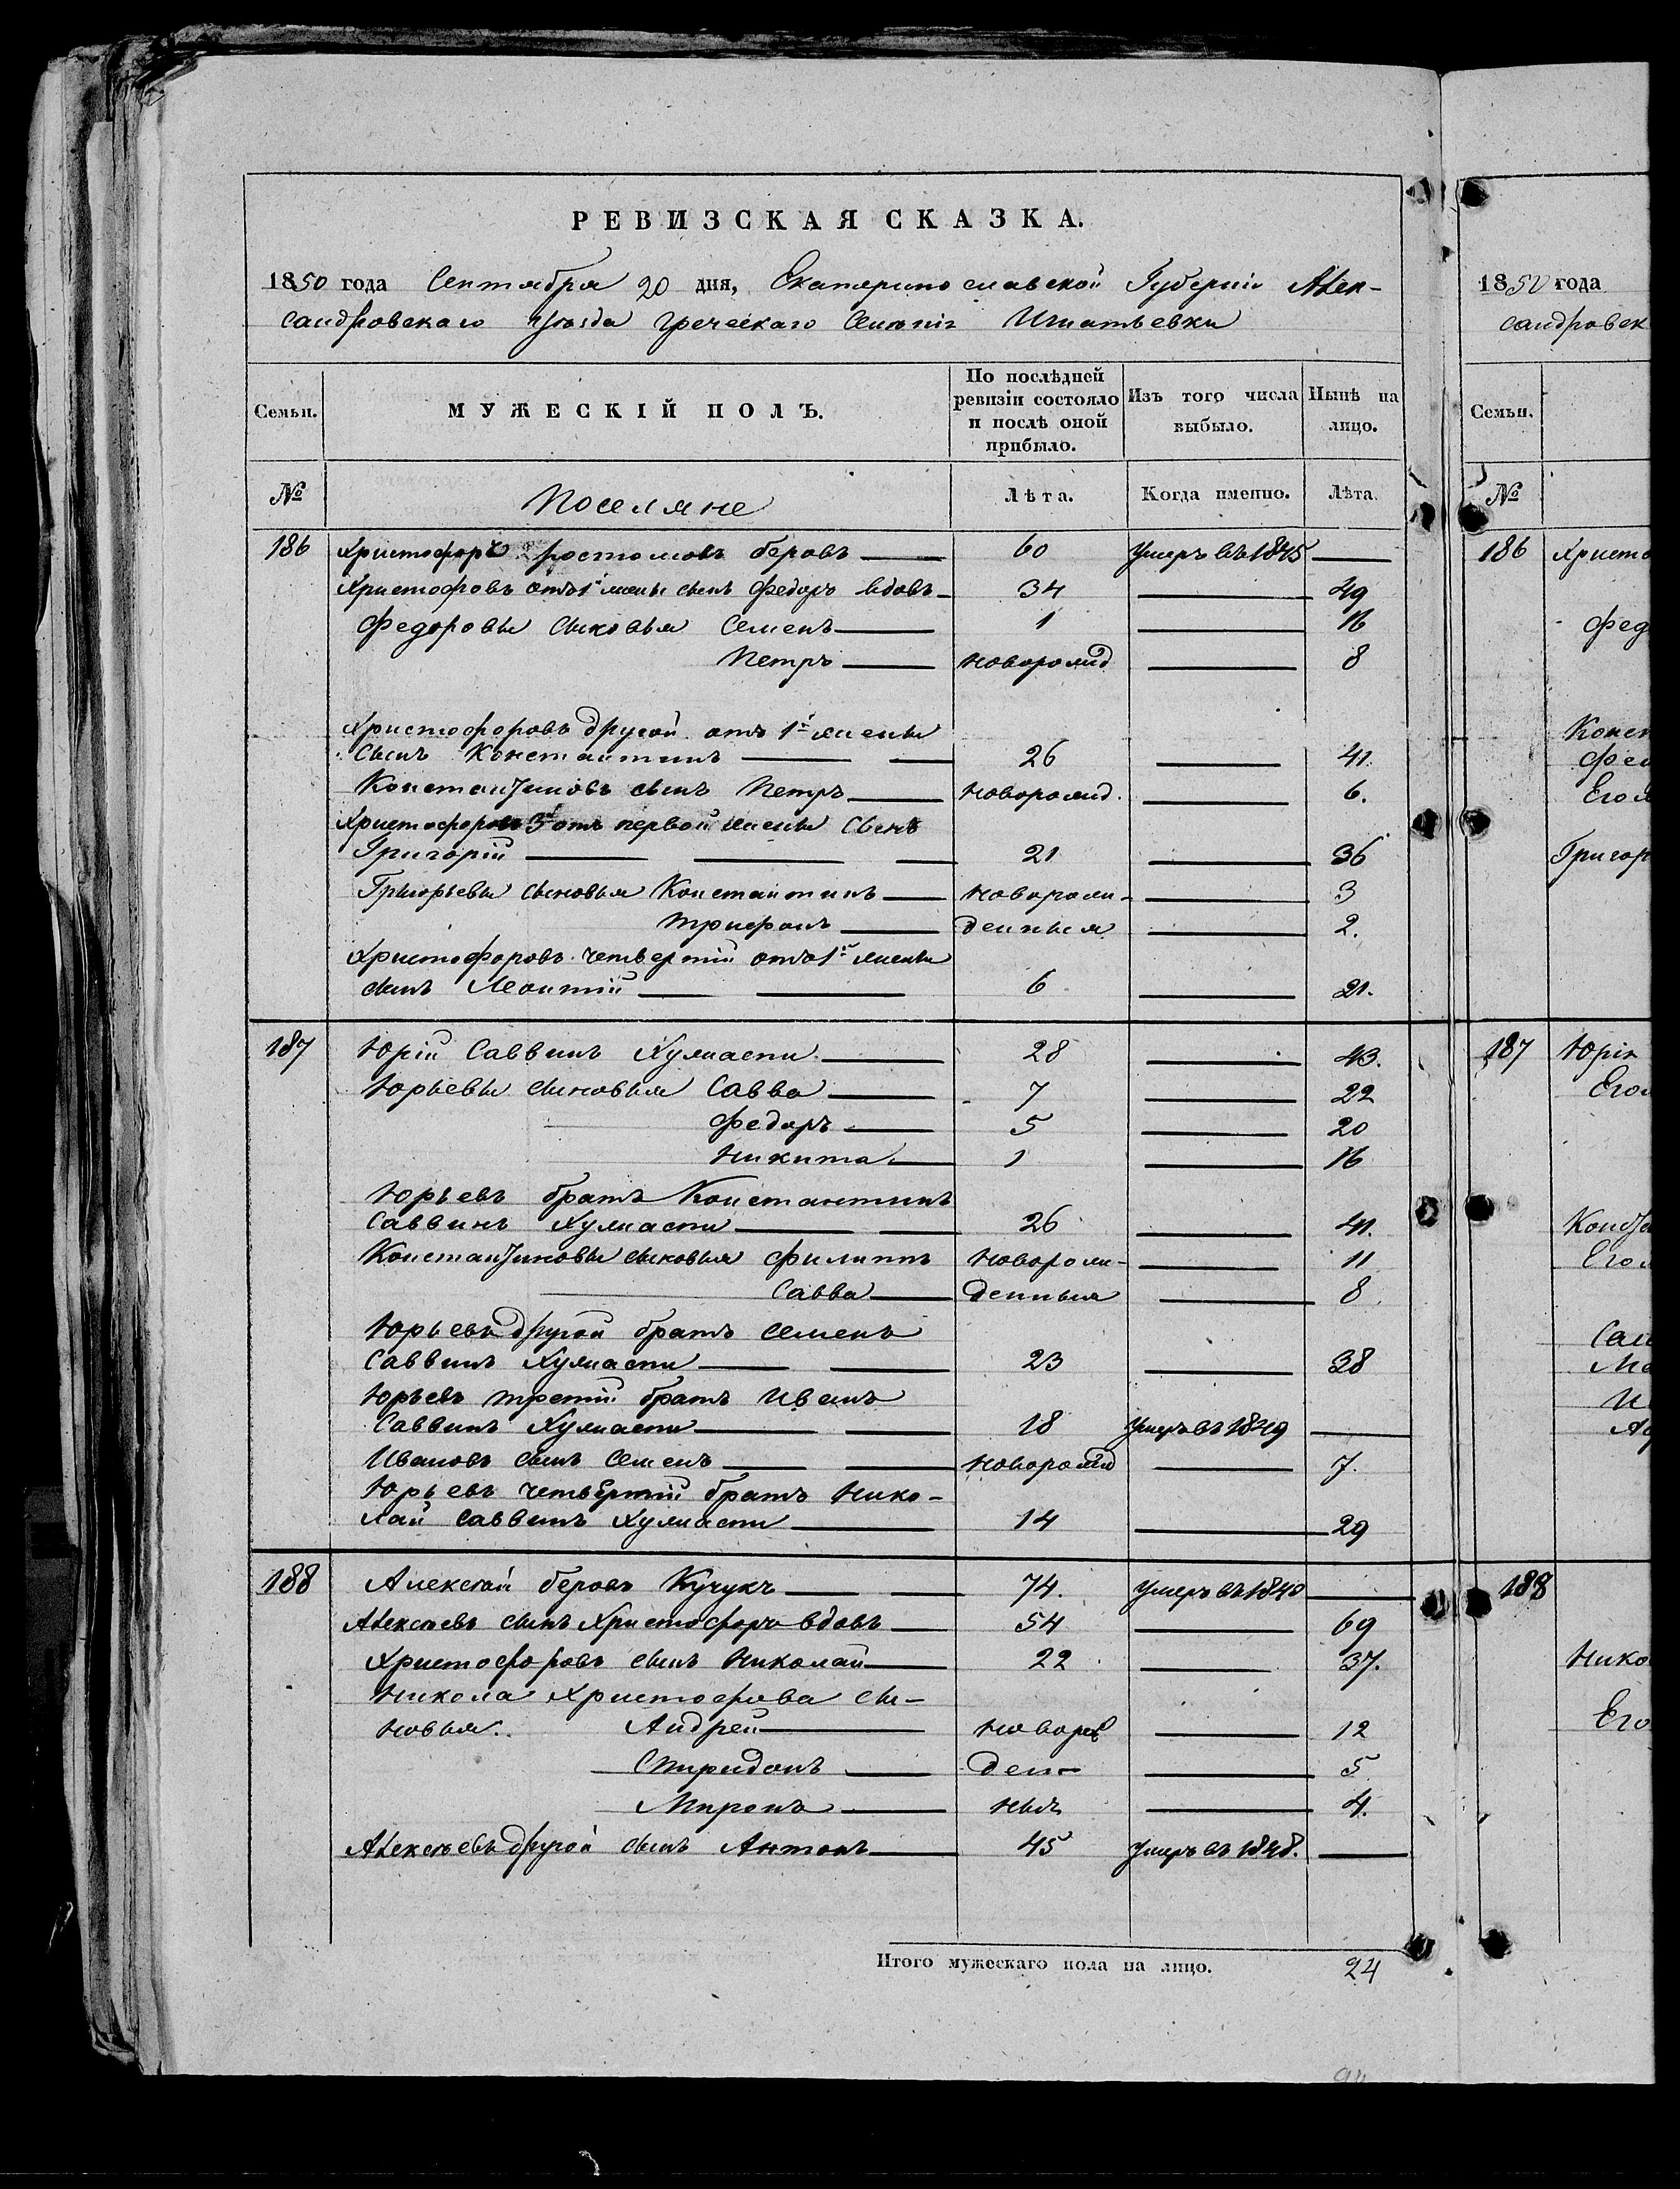 РЕВИЗСКАЯ СКАЗКА.
1850 года Сентября 20 дня, Екатеринославской Губерніи Алек-
сандровскаго уѣзда греческаго Селенія Игнатьевки
Семьи. МУЖЕСКІЙ ПОЛЪ. По послѣдней ревизіи состояло и послѣ оной прибыло. Изъ того числа выбыло. Нынѣ на лицо.
№ Поселяне Лѣта. Когда именно. Лѣта.
186 Христофоръ Ростомовъ беровъ — 60 умеръ въ 1845 —
Христофовъ отъ 1й жены сынъ Федоръ вдовъ — 34 — 49
Федоровы сыновья Семенъ — 1 — 16
Петръ — новорожд — 8
Христофоровъ другой отъ 1й жены
сынъ Константинъ — — 26 — 41.
Константиновъ сынъ Петръ — новорожд. — 6.
Христофоровъ 3й отъ первой жены сынъ
Григорій — — — 21 — 36
Григорьевы сыновья Константинъ — новорож- — 3
Трифонъ — денныя — 2.
Христофоровъ четвертій отъ 1й жены
сынъ Леонтій — — 6 — 21.
187 Юрій Саввинъ Хумасти — 28 — 43.
Юрьевы сыновья Савва — 7 — 22
Федоръ — 5 — 20
Никита — 1 — 16
Юрьевъ братъ Константинъ
Саввинъ Хумасти — — 26 — 41.
Константиновы сыновья Филиппъ новорож- — 11
Савва — денныя — 8.
Юрьевъ другой братъ Семенъ
Саввинъ Хумасти — — 23 — 38
Юрьевъ третій братъ Иванъ
Саввинъ Хумасти — — 18 умеръ въ 1849 —
Ивановъ сынъ Семенъ — — новорожд — 7.
Юрьевъ четвертій братъ Нико-
лай Саввинъ Хумасти — 14 — 29
188 Алексѣй беровъ Кучукъ — — 74. умеръ въ 1840 —
Алексѣевъ сынъ Христофоръ вдовъ — 54 — 69
Христофоровъ сынъ Николай — 22 — 37.
Никола Христофова сы-
новья. Андрей — новорож — 12
Спиридонъ — ден- — 5
Миронъ — ныя — 4.
Алексѣевъ другой сынъ Антонъ — 45 умеръ въ 1848. —
Итого мужескаго пола на лицо. 24
1850 года
сандровск
Семьи.
№
186 Христо
Фед
Конст
Его
Григор
187 Юрія
Его
Его
188
Нико
Его